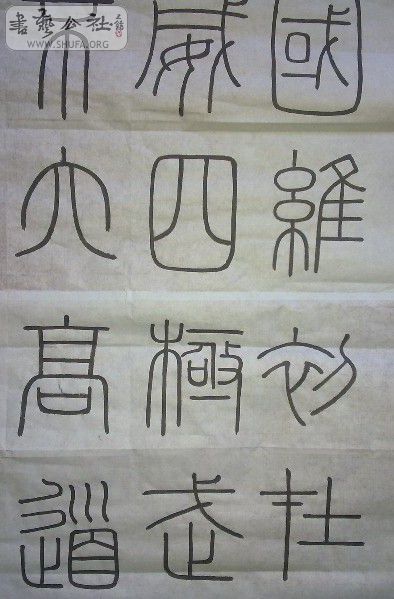 書藝公社
WWW.SHUFA.ORG
國維初在
威四極武
高道